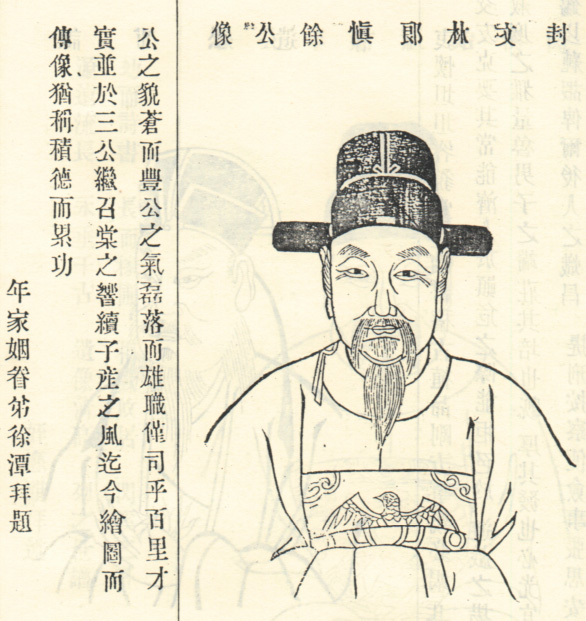 封文林郎慎餘公像
公之貌蒼而豐公之氣磊落而雄職僅司乎百里才
實並於三公繼召棠之響續子産之風迄今繪圖而
傳像猶稱積德而累功
年家姻眷弟徐潭拜題